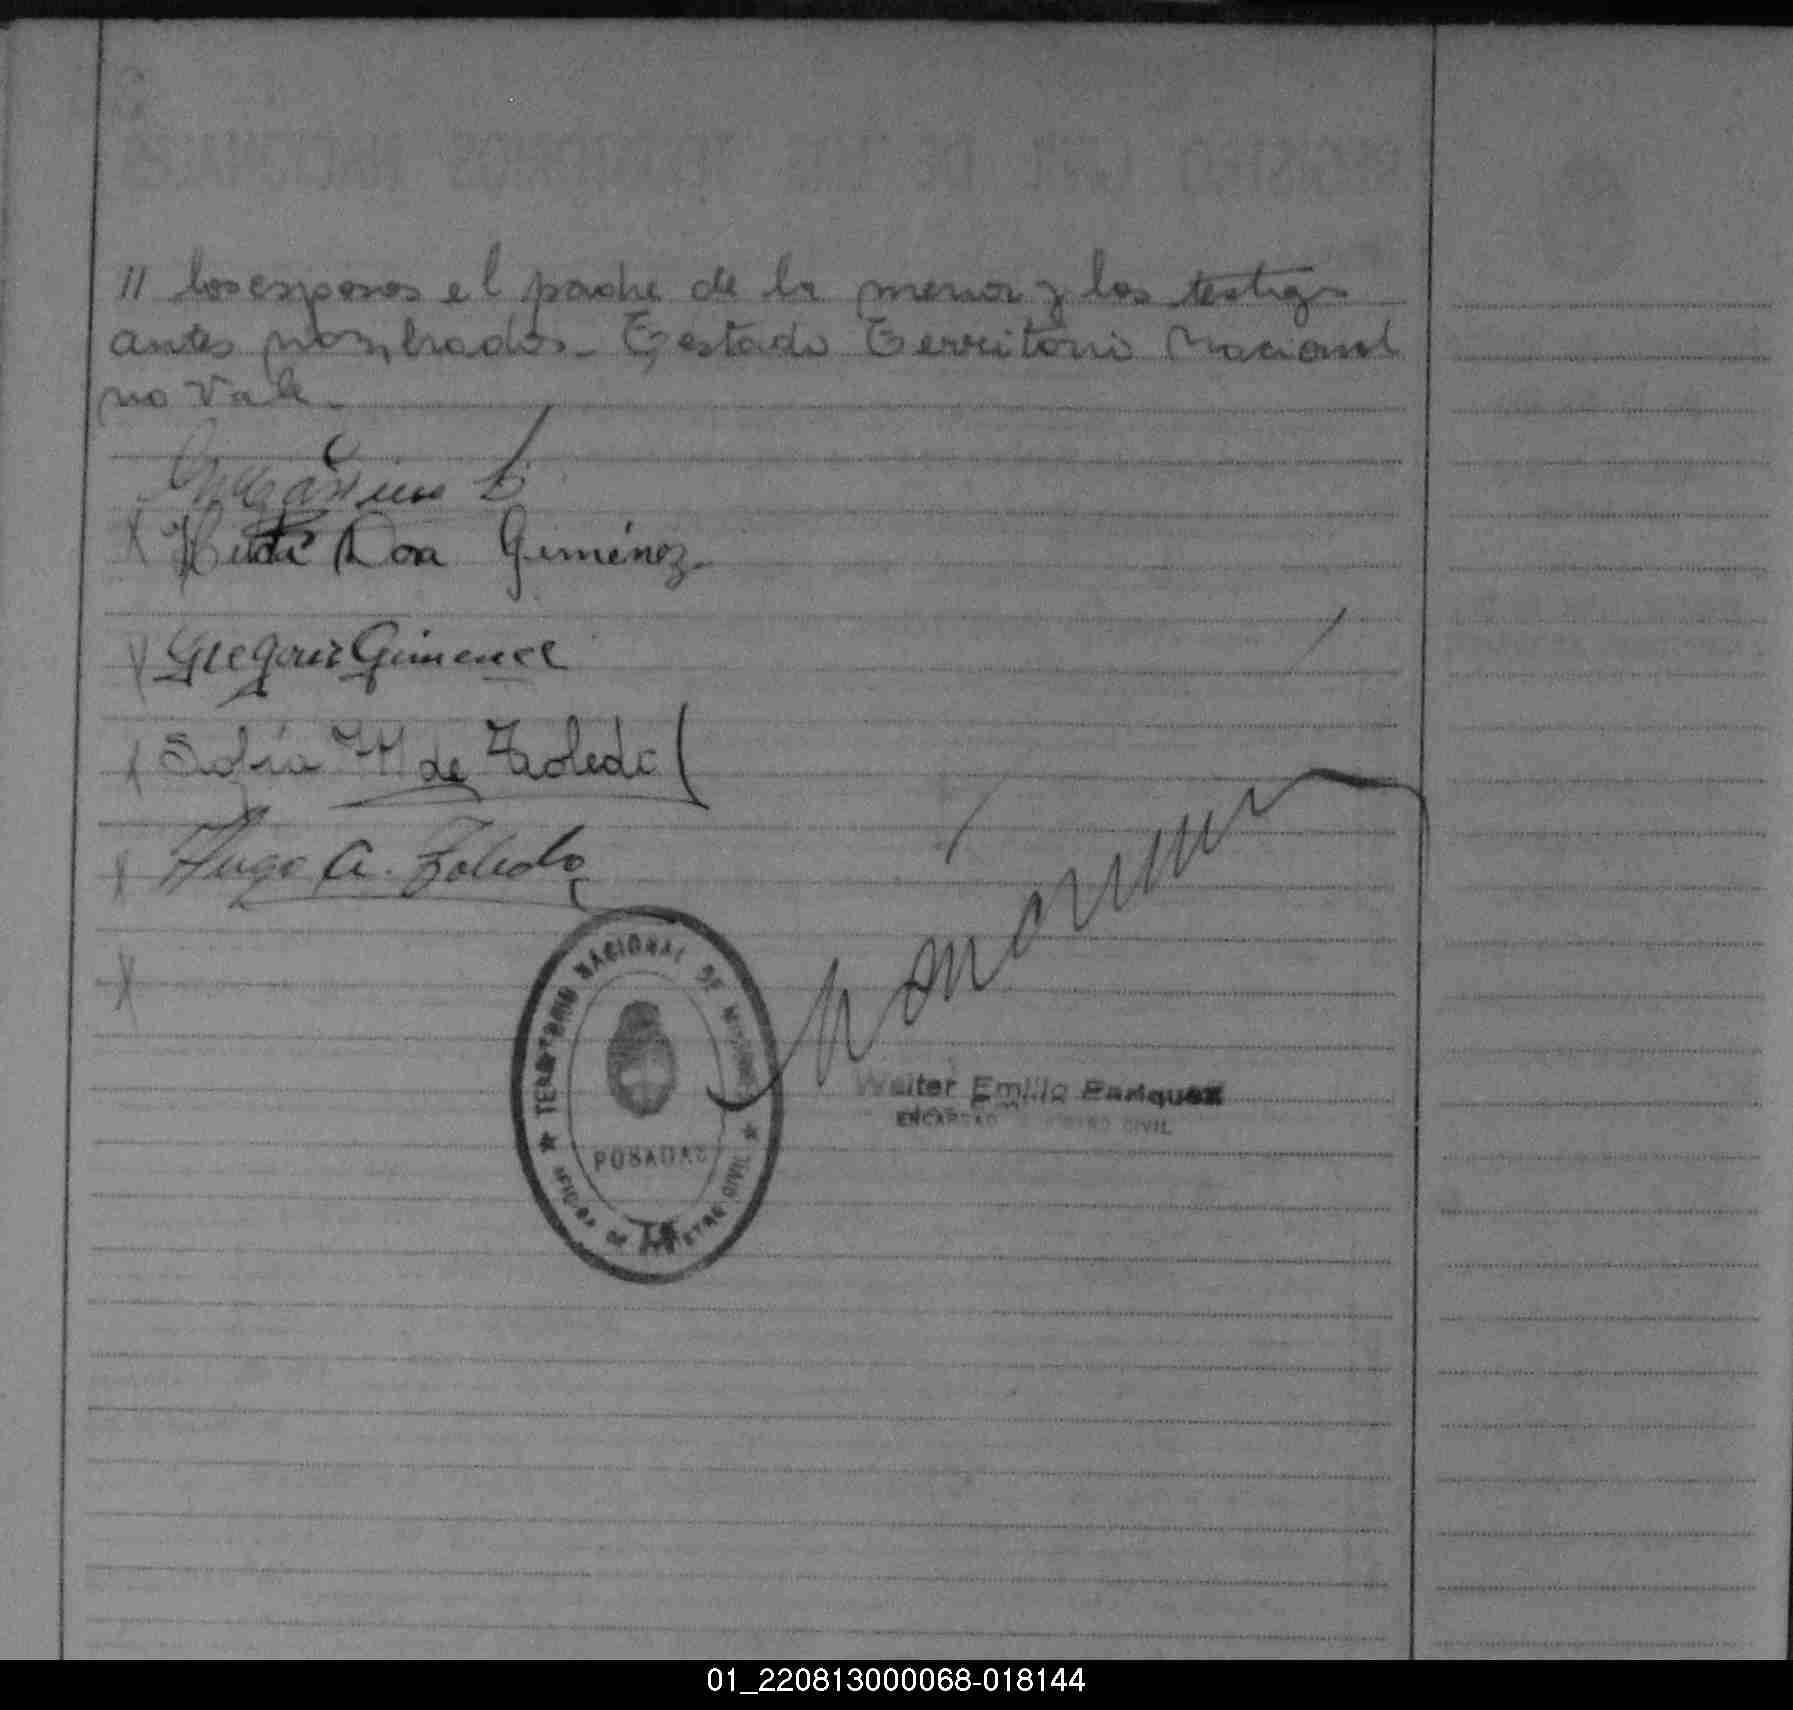 // los esposos el padre de la menor y los testigos
antes nombrados. Testado Territorio Nacional
no Vale.
Hilda Dora Giménez
Gregorio Gimenez
Sofía M de Toledo
Hugo A. Toledo
TERRITORIO NACIONAL DE MISIONES
POSADAS
OFICINA DE REGISTRO CIVIL
Walter Emilio Enriquez
ENCARGADO REGISTRO CIVIL
01_220813000068-018144